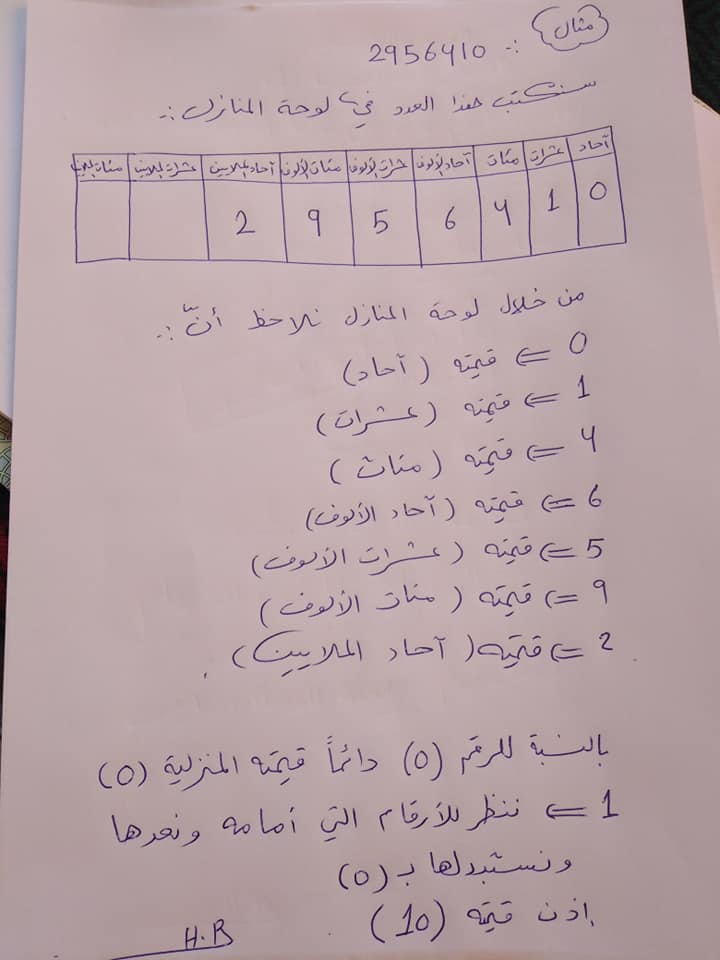 مثال
2956410 :.
سنكتب هذا العدد في لوحة المنازل :.
آحاد عشرات مئات آحاد الألوف عشرات الألوف مئات الألوف آحاد الملايين عشرات الملايين مئات الملايين
0 1 4 6 5 9 2
من خلال لوحة المنازل نلاحظ أنّ :.
0 <= قيمته (آحاد)
1 <= قيمته (عشرات)
4 <= قيمته (مئات)
6 <= قيمته (آحاد الألوف)
5 <= قيمته (عشرات الألوف)
9 <= قيمته (مئات الألوف)
2 <= قيمته (آحاد الملايين).
بالنسبة للرقم (0) دائماً قيمته المنزلية (0)
1 <= ننظر للأرقام التي أمامه ونعدها
ونستبدلها بـ (0)
إذن قيمته (10)
H.B